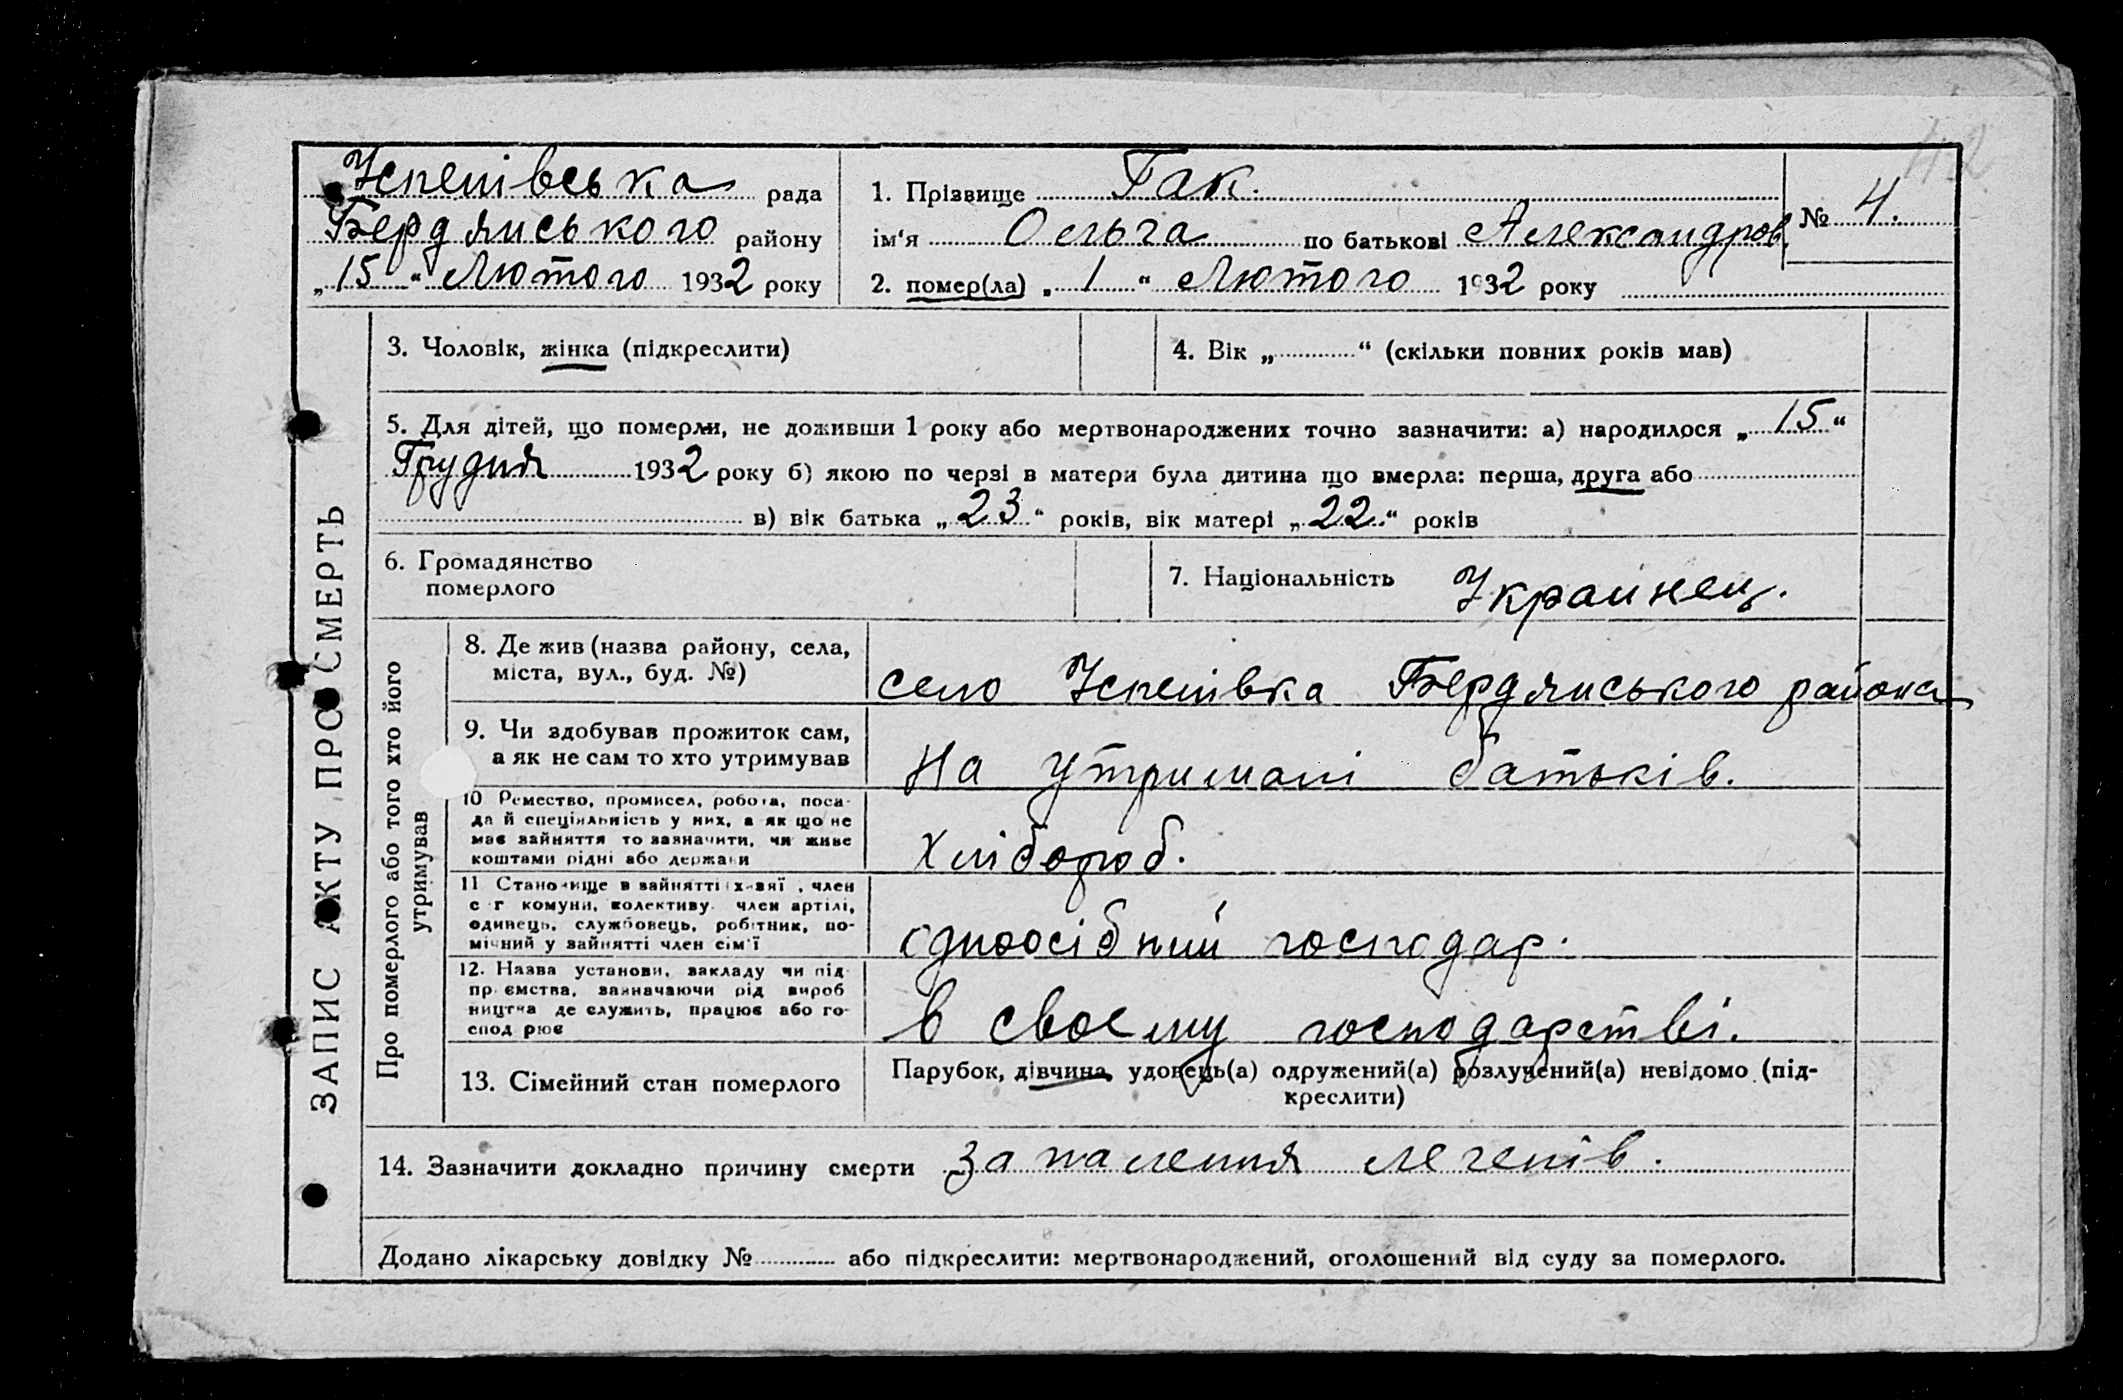 42
Успенівська рада
Бердянського району
„15“ Лютого 1932 року
1. Прізвище Гак.
ім‘я Ольга по батькові Александров.
2. помер(ла) „1“ Лютого 1932 року
№ 4.
ЗАПИС АКТУ ПРО СМЕРТЬ
3. Чоловік, жінка (підкреслити)
4. Вік „ “ (скільки повних років мав)
5. Для дітей, що померли, не доживши 1 року або мертвонароджених точно зазначити: а) народилося „15“
Грудня 1932 року б) якою по черзі в матери була дитина що вмерла: перша, друга або
в) вік батька „23“ років, вік матері „22“ років
6. Громадянство
померлого
7. Національність Украинец.
Про померлого або того хто його
утримував
8. Де жив (назва району, села,
міста, вул., буд. №)
село Успенівка Бердянського района
9. Чи здобував прожиток сам,
а як не сам то хто утримував
На утримані батьків.
10 Ремество, промисел, робота, поса-
да й спеціяльність у них, а як що не
має зайняття то зазначити, чи живе
коштами рідні або держави
хлібороб.
11 Становище в зайнятті хазяї, член
с г комуни, колективу член артілі,
одинець, службовець, робітник, по-
мічний у зайнятті член сім'ї
одноосібний господар.
12. Назва установи, закладу чи під-
приємства, зазначаючи рід вироб
ництва де служить, працює або го-
сподарює
в своему господарстві.
13. Сімейний стан померлого
Парубок, дівчина, удовець(а) одружений(а) розлучений(а) невідомо (під-
креслити)
14. Зазначити докладно причину смерти запалення легенів.
Додано лікарську довідку № або підкреслити: мертвонароджений, оголошений від суду за померлого.